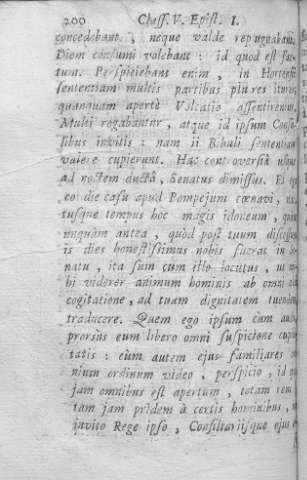 200 Class. V. Epist. I.
concedebant, neque valde repugnabant.
Diem consumi volebant: id quod est fac-
tum. Perspiciebant enim, in Hortensii
sententiam multis partibus plures ituros,
quanquam apertè Volcatio assentirentur.
Multi rogabantur, atque id ipsum Consu-
libus invitis: nam ii Bibuli sententiam
valere cupierunt. Hac controversiâ usque
ad noctem ductâ, Senatus dimissus. Et ego
eo die casu apud Pompejum cœnavi, nac-
tusque tempus hoc magis idoneum, quàm
unquam antea, quòd post tuum discessum
is dies honestissimus nobis fuerat in Se-
natu, ita sum cum illo locutus, ut mi-
hi viderer animum hominis ab omni aliâ
cogitatione, ad tuam dignitatem tuendam
traducere. Quem ego ipsum cum audio,
prorsus eum libero omni suspicione cupidi-
tatis: cùm autem ejus familiares om-
nium ordinum video, perspicio, id quod
jam omnibus est apertum, totam rem is-
tam jam pridem à certis hominibus, non
invito Rege ipso, Consiliariisque ejus